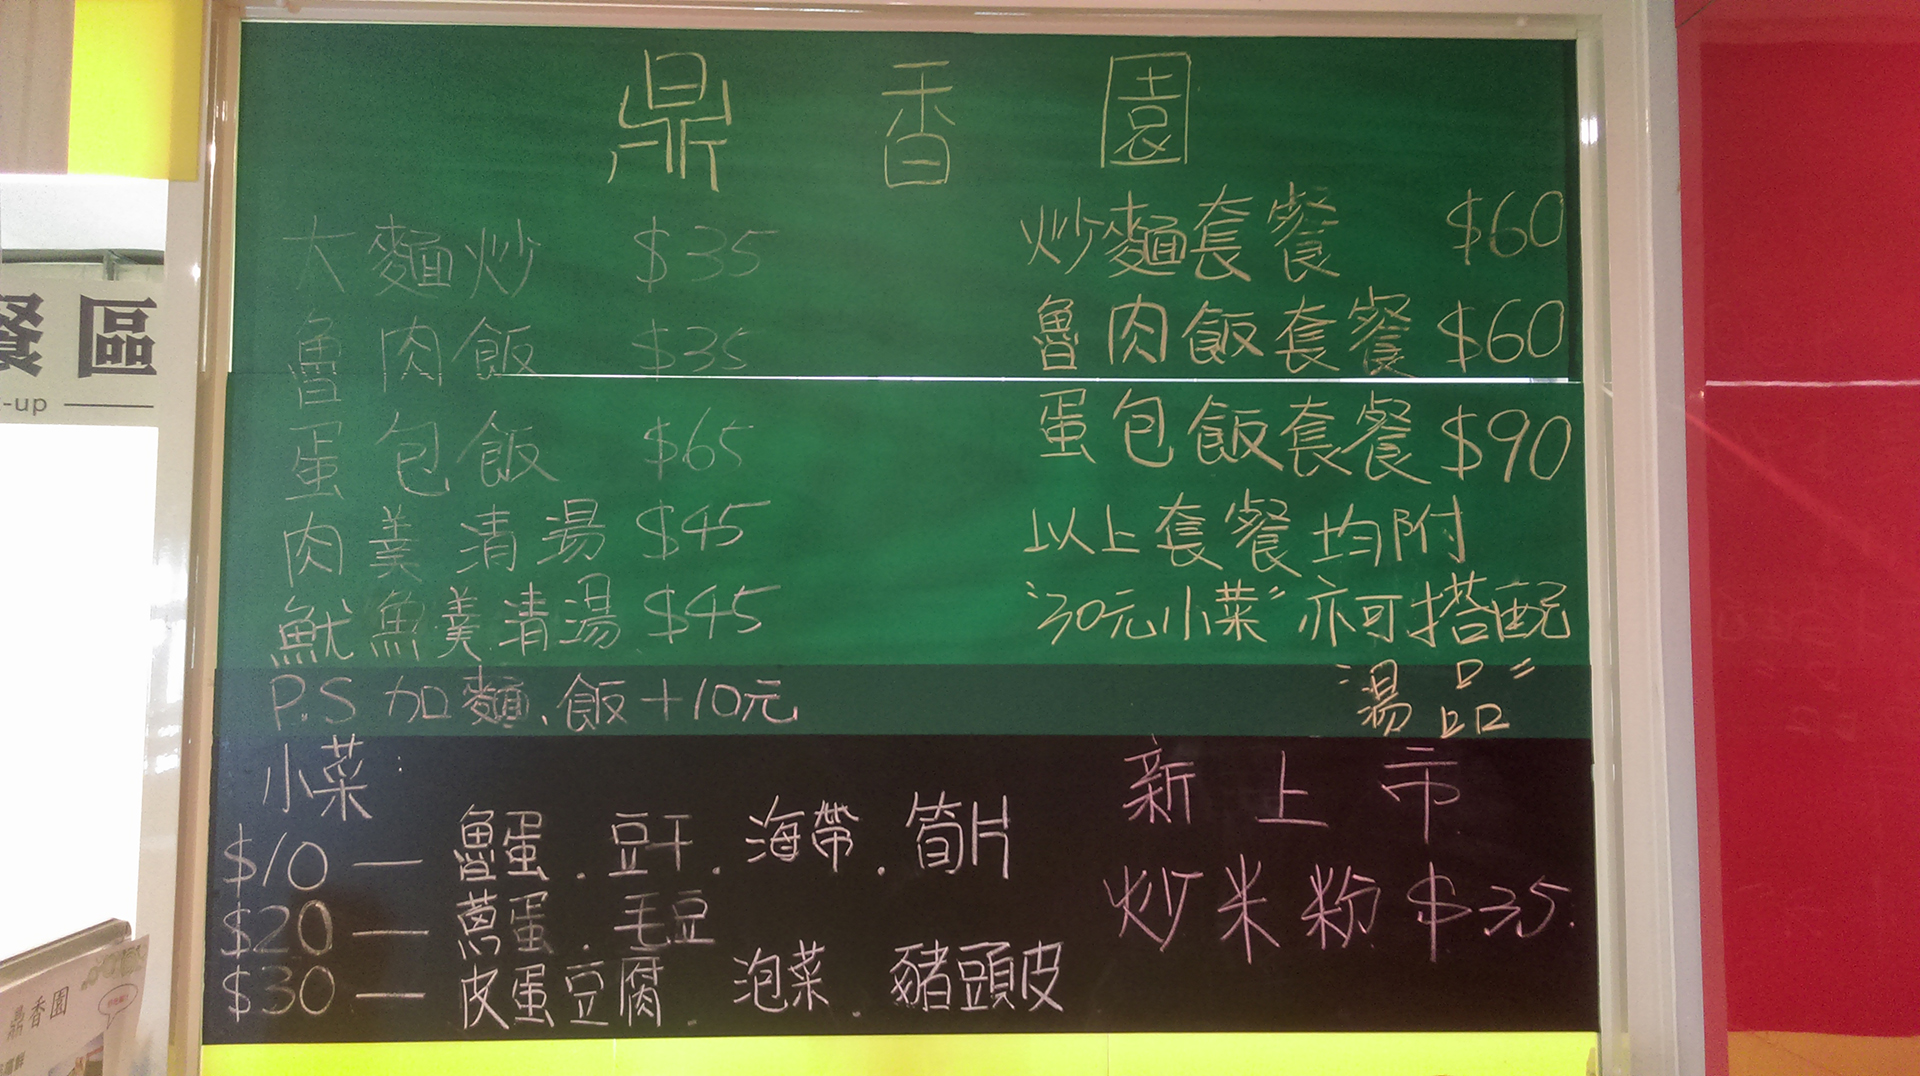 鼎香園
大麵炒 $35
魯肉飯 $35
蛋包飯 $65
肉羹清湯 $45
魷魚羹清湯 $45
P.S 加麵、飯+10元
炒麵套餐 $60
魯肉飯套餐 $60
蛋包飯套餐 $90
以上套餐均附
"30元小菜"亦可搭配
"湯品"
小菜:
$10 — 魯蛋.豆干.海帶.筍片
$20 — 蔥蛋.毛豆
$30 — 皮蛋豆腐.泡菜.豬頭皮
新上市
炒米粉 $35.
餐區
-up
鼎香園